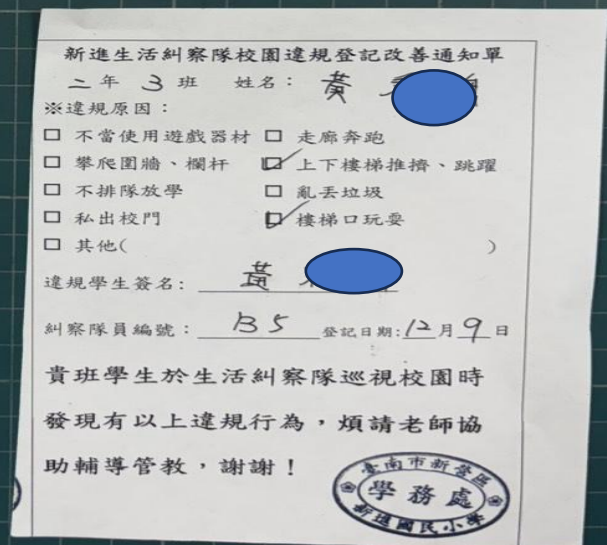 新進生活糾察隊校園違規登記改善通知單
二年 3 班 姓名：黃
※違規原因：
□ 不當使用遊戲器材 □ 走廊奔跑
□ 攀爬圍牆、欄杆 ☑ 上下樓梯推擠、跳躍
□ 不排隊放學 □ 亂丟垃圾
□ 私出校門 ☑ 樓梯口玩耍
□ 其他( )
違規學生簽名：黃
糾察隊員編號：B5 登記日期:12月9日
貴班學生於生活糾察隊巡視校園時
發現有以上違規行為，煩請老師協
助輔導管教，謝謝！
臺南市新營區
學務處
新進國民小學